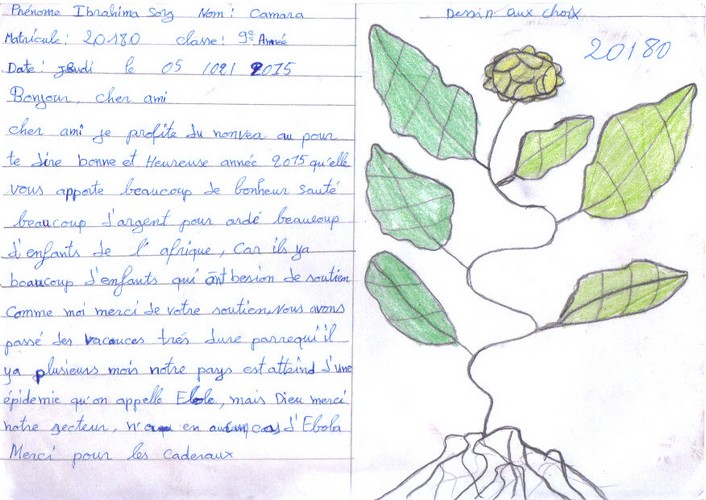 Prénome Ibrahima Sory Nom : Camara
Matricule : 20180 classe : 9e Année
Date : jeudi le 05 /02/ 2015
Bonjour, cher ami
cher ami je profite du nouvea au pour
te dire bonne et Heureuse année 2015 qu'elle
vous apporte beaucoup de bonheur sauté
beaucoup d'argent pour aidé beaucoup
d'enfants de l'afrique, Car il ya
beaucoup d'enfants qui ont besion de soutien
comme moi merci de votre soutien, Nous avons
passé des vacances trés dure parrequ'il
ya plusieurs mois notre pays est atteind d'une
épidemie qu'on appelle Ebole, mais Dieu merci
notre secteur, n'a en aucun cas d'Ebola
Merci pour les caderaux
Dessin aux choix
20180